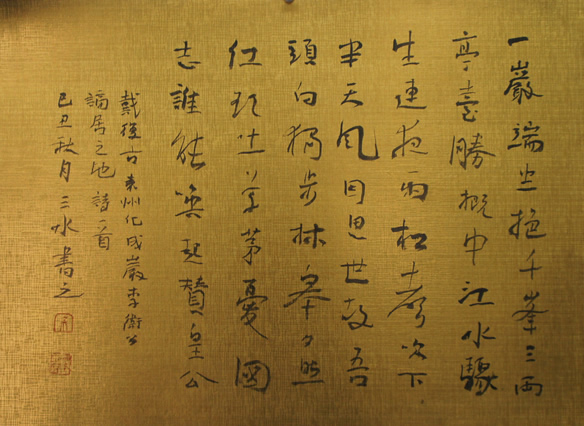 一巖端坐挹千峯三兩
亭臺勝概中江水驟
生連夜雨松聲吹下
半天風因思世故吾
頭白獨步林皋夕照
紅聊吐草茅憂國
志誰能喚起贊皇公
戴復古袁州化成巖李衛公
謫居之地詩一首
己丑秋月三水書之